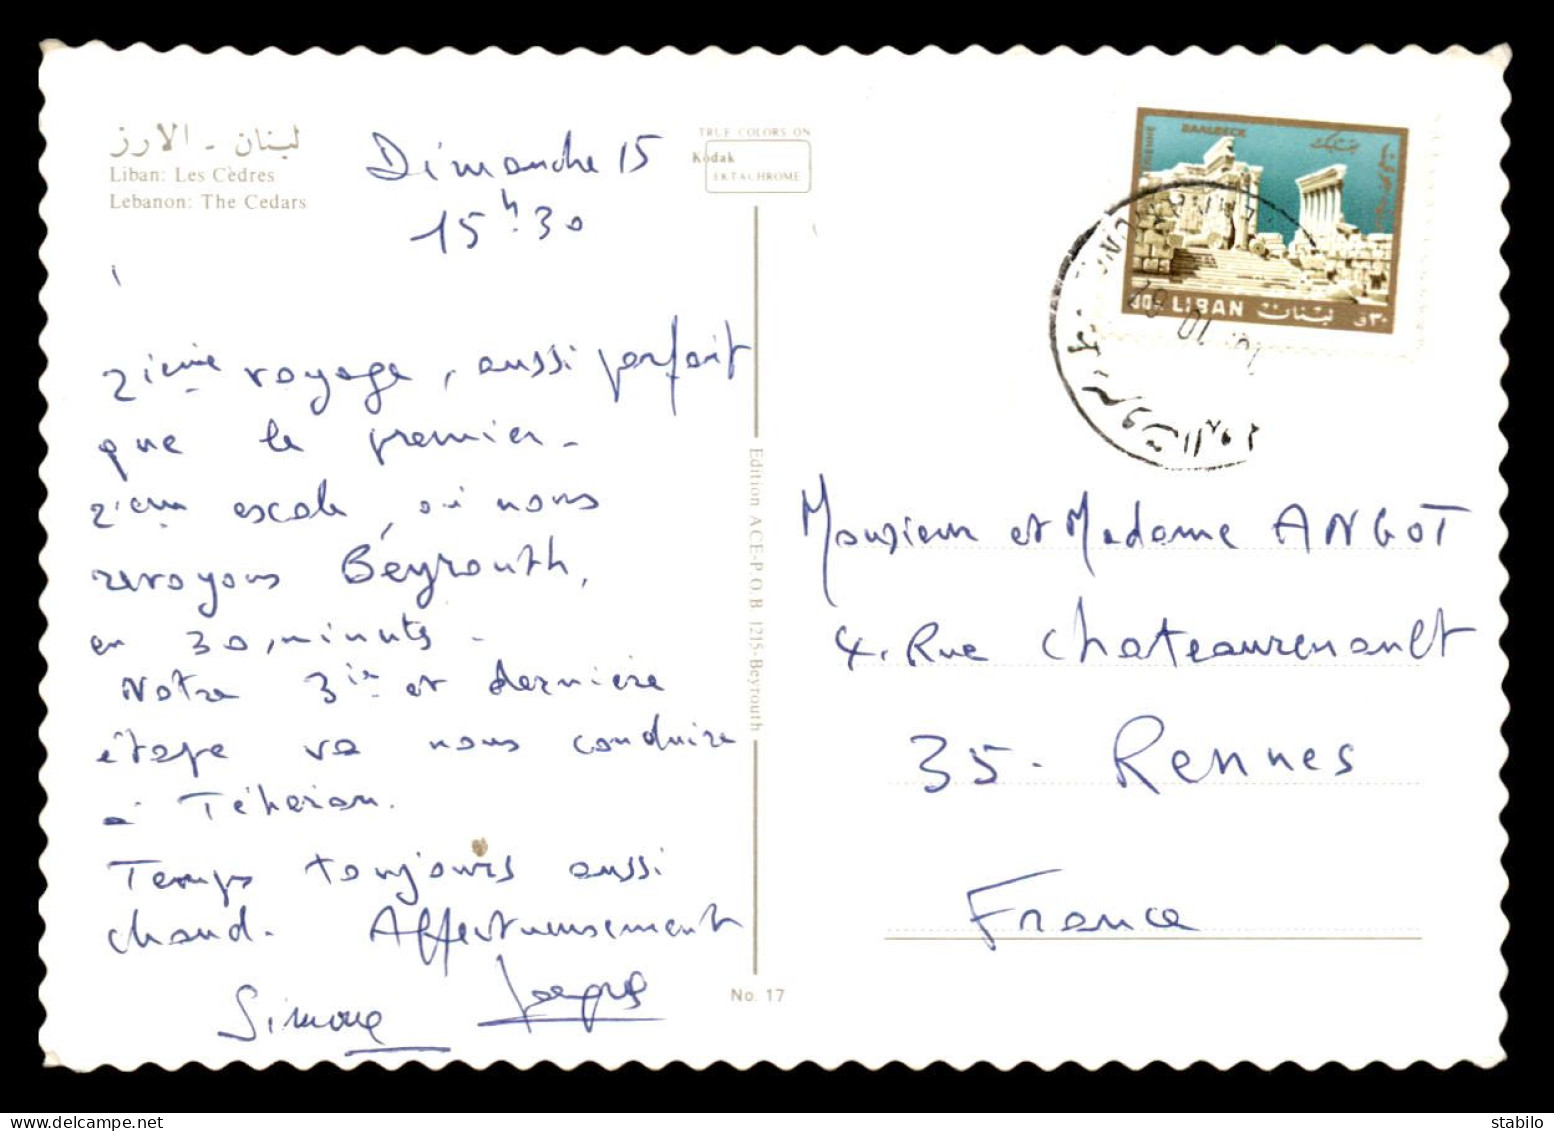 لبنان - الارز
Liban: Les Cèdres
Lebanon: The Cedars
TRUE COLORS ON
Kodak
EKTACHROME
Dimanche 15
15h30
2ième voyage, aussi parfait
que le premier -
2ième escale, où nous
revoyons Béyrouth,
en 30 minutes -
Notre 3ie et dernière
étape va nous conduire
à Téhéran.
Temps toujours aussi
chaud. Affectueusement
Simone Jacques
Edition ACE-P.O.B 1215-Beyrouth
No. 17
BAALBECK
بعلبك
30P LIBAN لبنان ٣٠ ق
10 67
Monsieur et Madame ANGOT
4. Rue Chateaurenault
35 - Rennes
France
stabilo